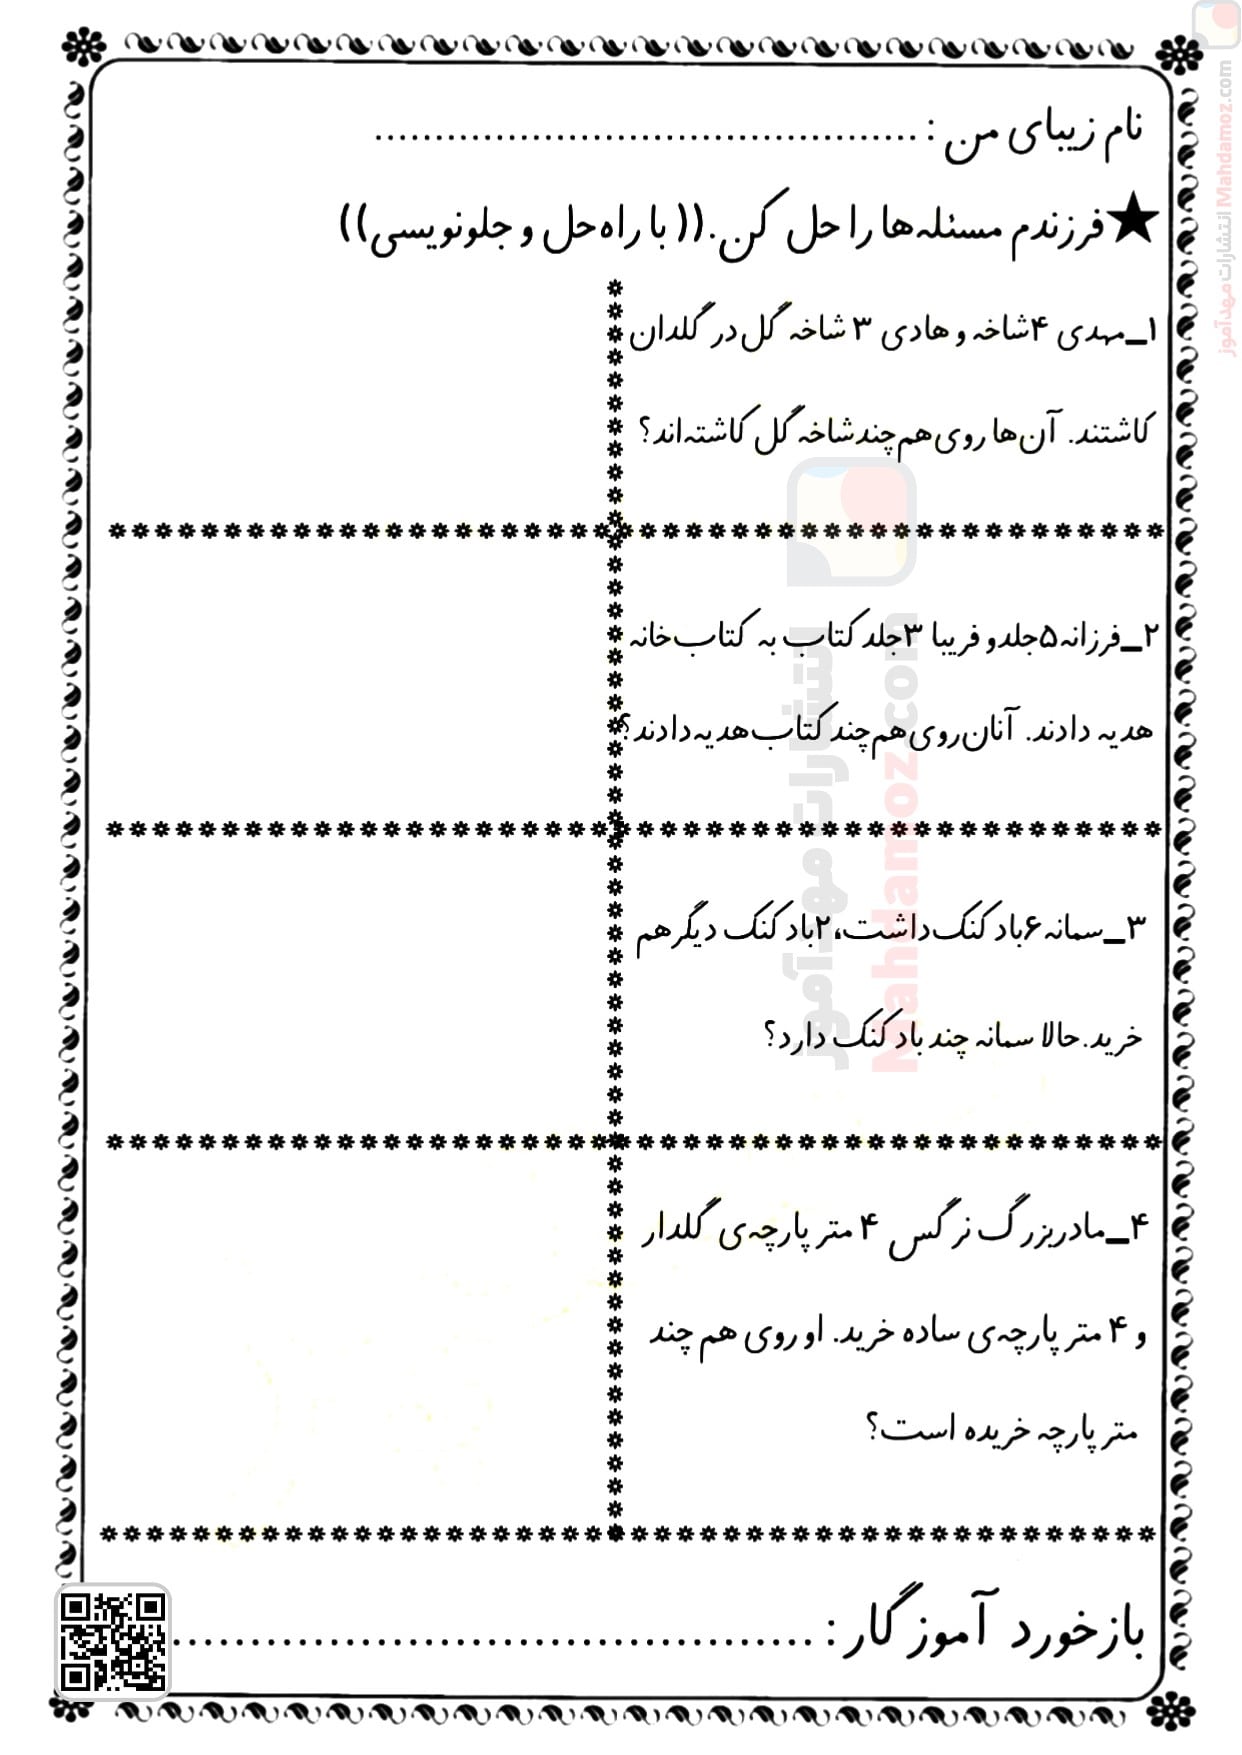 نام زیبای من : ..............................................
فرزندم مسئله‌ها را حل کن.(( با راه‌حل و جلونویسی))
۱_مهدی ۴شاخه و هادی ۳ شاخه گل در گلدان
کاشتند. آن‌ها روی‌هم چند شاخه گل کاشته‌اند؟
۲_فرزانه۵جلدو فریبا ۳جلد کتاب به کتاب‌خانه
هدیه دادند. آنان روی‌هم چند کتاب هدیه دادند؟
۳_سمانه۶بادکنک داشت،۲بادکنک دیگر هم
خرید.حالا سمانه چند بادکنک دارد؟
۴_مادربزرگ نرگس ۴ متر پارچه‌ی گلدار
و ۴ متر پارچه‌ی ساده خرید. او روی هم چند
متر پارچه خریده است؟
بازخورد آموزگار : ..........................................
انتشارات مهدآموز Mahdamoz.com
انتشارات مهدآموز
Mahdamoz.com